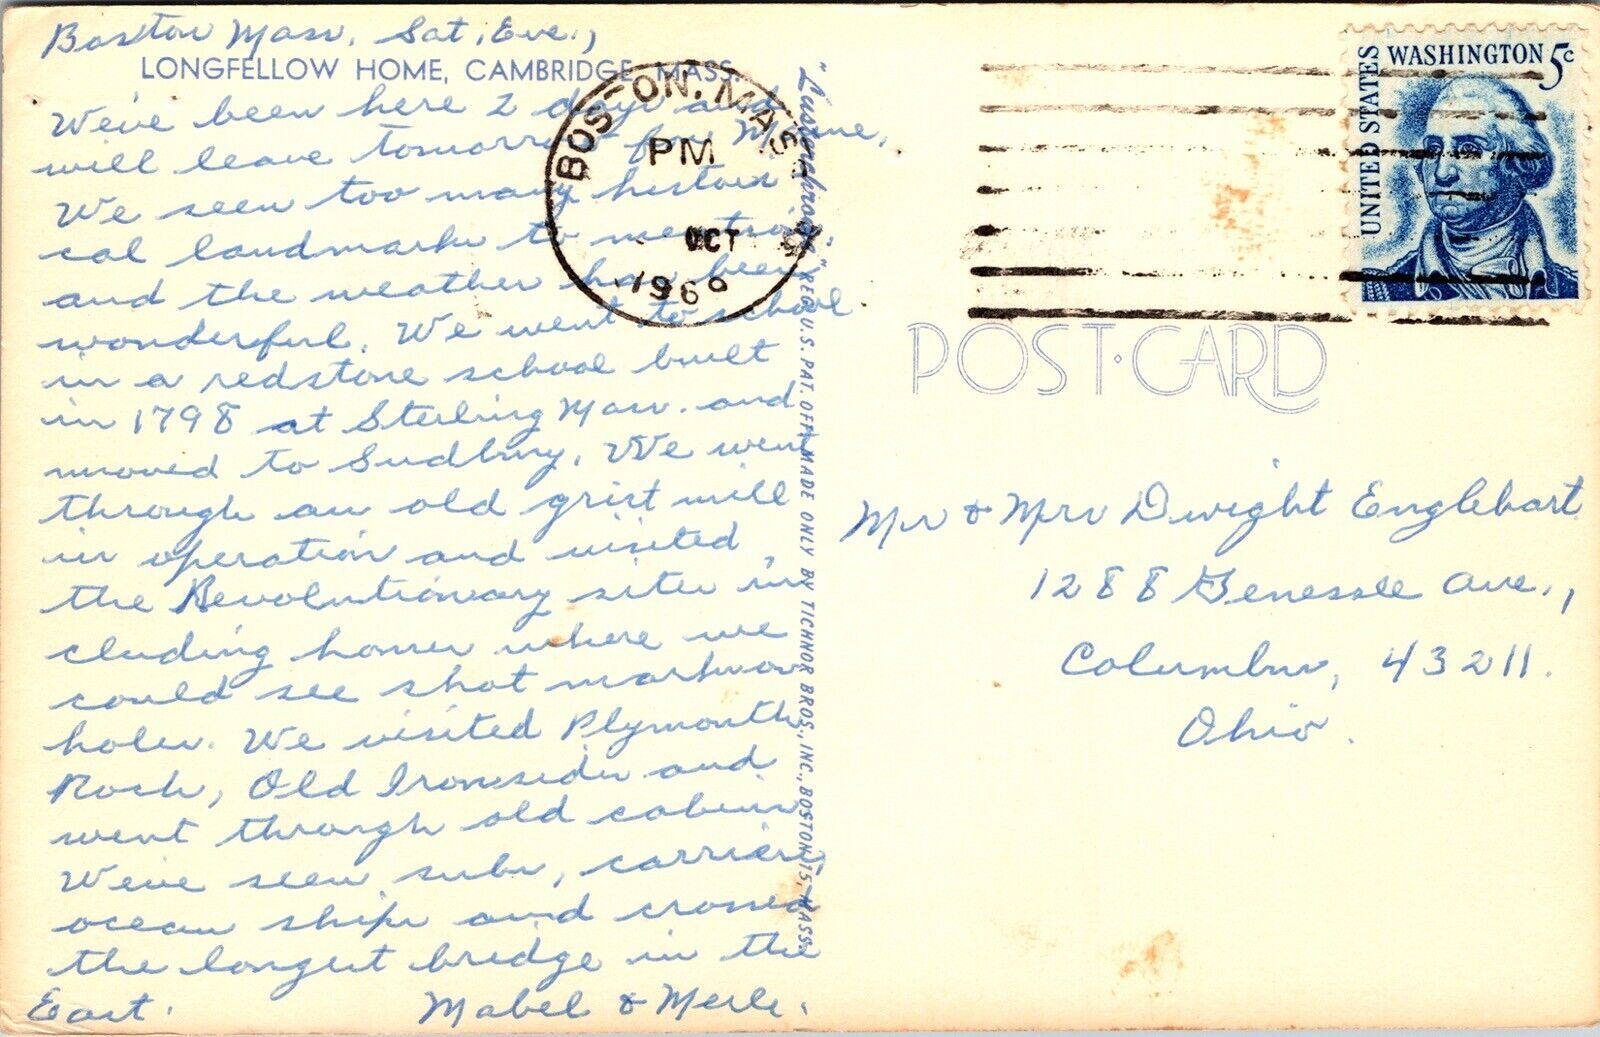 Boston Mass. Sat. Eve.,
LONGFELLOW HOME, CAMBRIDGE, MASS.
We've been here 2 days and
will leave tomorrow for Maine.
We seen too many histori
cal landmarks to mention.
and the weather has been
wonderful. We went to school
in a redstone school built
in 1798 at Sterling Mass. and
moved to Sudbury. We went
through an old grist mill
in operation and visited
the Revolutionary sites in
cluding homes where we
could see shot marks or
holes. We visited Plymouth
Rock, Old Ironsides and
went through old cabins
We've seen subs, carriers
ocean ships and crossed
the longest bridge in the
East. Mabel & Merle.
"Lusterchrome" REG. U.S. PAT. OFF. MADE ONLY BY TICHNOR BROS., INC., BOSTON 15, MASS.
BOSTON, MASS.
PM
OCT
UNITED STATES
WASHINGTON 5c
POST·CARD
Mr & Mrs Dwight Englehart
1288 Genessee Ave.,
Columbus, 43211.
Ohio.